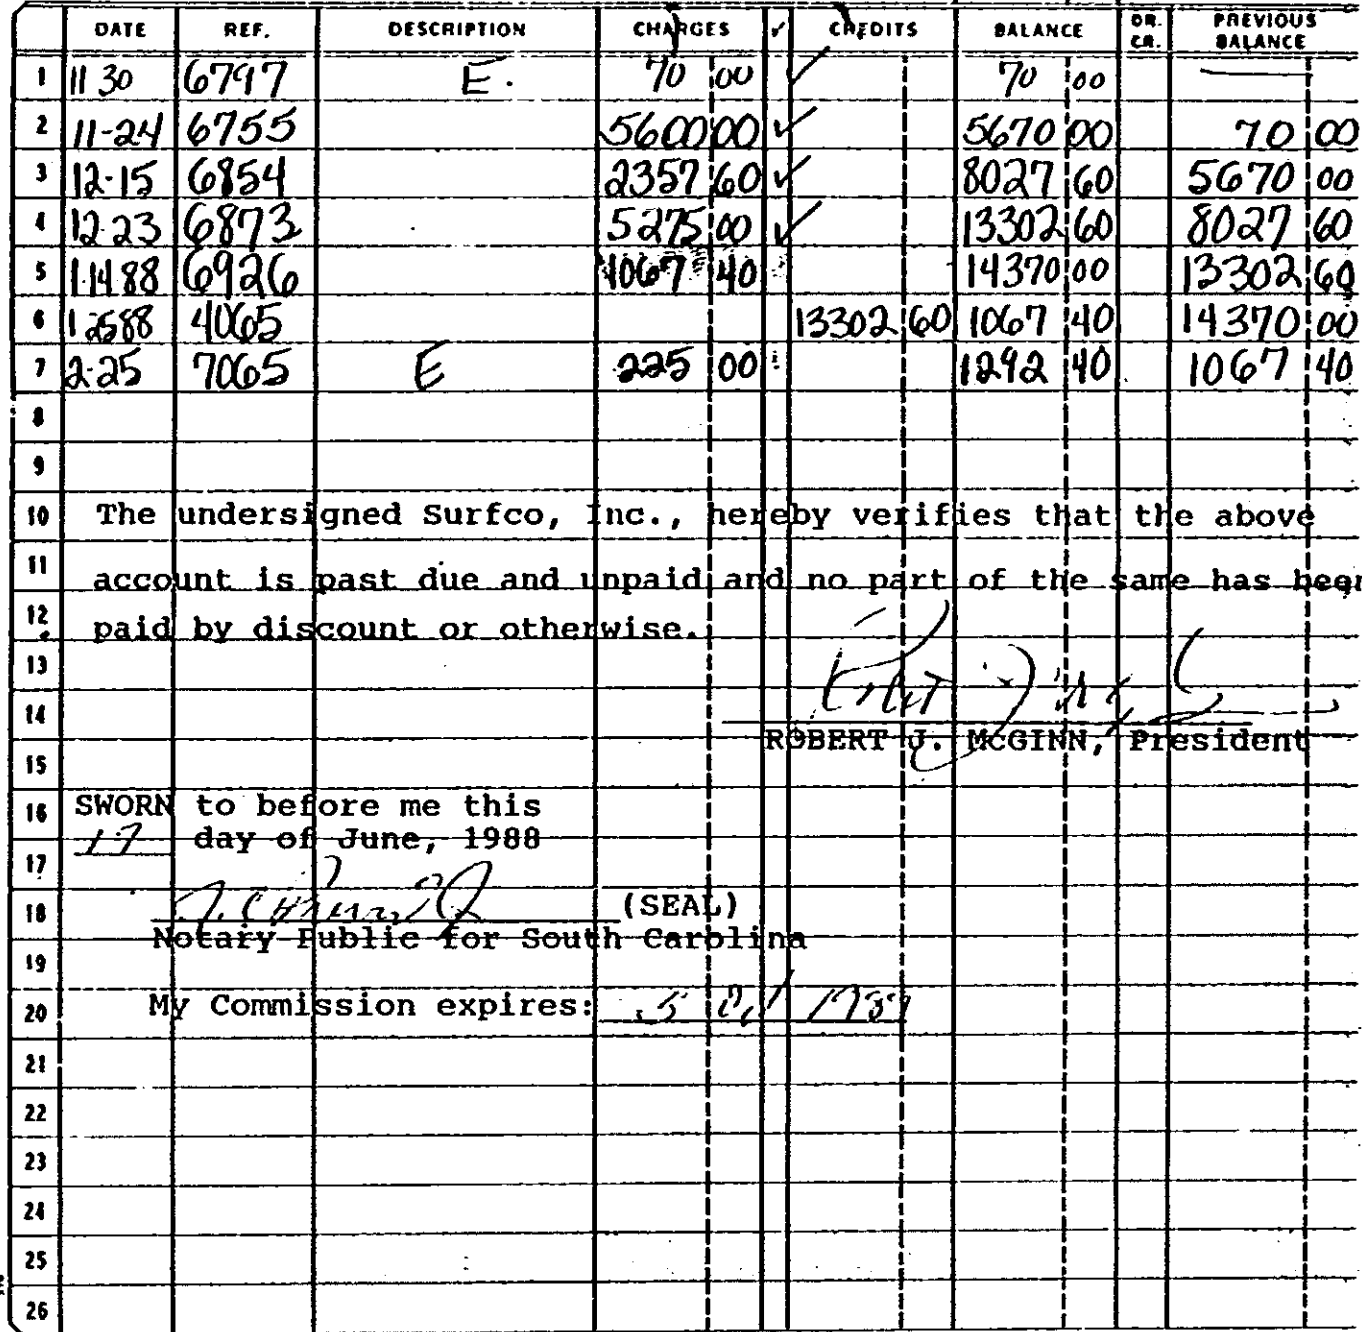 DATE REF. DESCRIPTION CHARGES ✓ CREDITS BALANCE DR. CR. PREVIOUS BALANCE
1 11 30 6797 E. 70 00 ✓ 70 00 —
2 11-24 6755 5600 00 ✓ 5670 00 70 00
3 12-15 6854 2357 60 ✓ 8027 60 5670 00
4 12 23 6873 5275 00 ✓ 13302 60 8027 60
5 1-14 88 6926 1067 40 14370 00 13302 60
6 1 25 88 4065 13302 60 1067 40 14370 00
7 2-25 7065 E 225 00 1292 40 1067 40
8
9
10 The undersigned Surfco, Inc., hereby verifies that the above
11 account is past due and unpaid and no part of the same has been
12 paid by discount or otherwise.
13
14
ROBERT J. McGINN, President
15
16 SWORN to before me this
17 day of June, 1988
17
18 (SEAL)
Notary Public for South Carolina
19
20 My Commission expires:
21
22
23
24
25
26